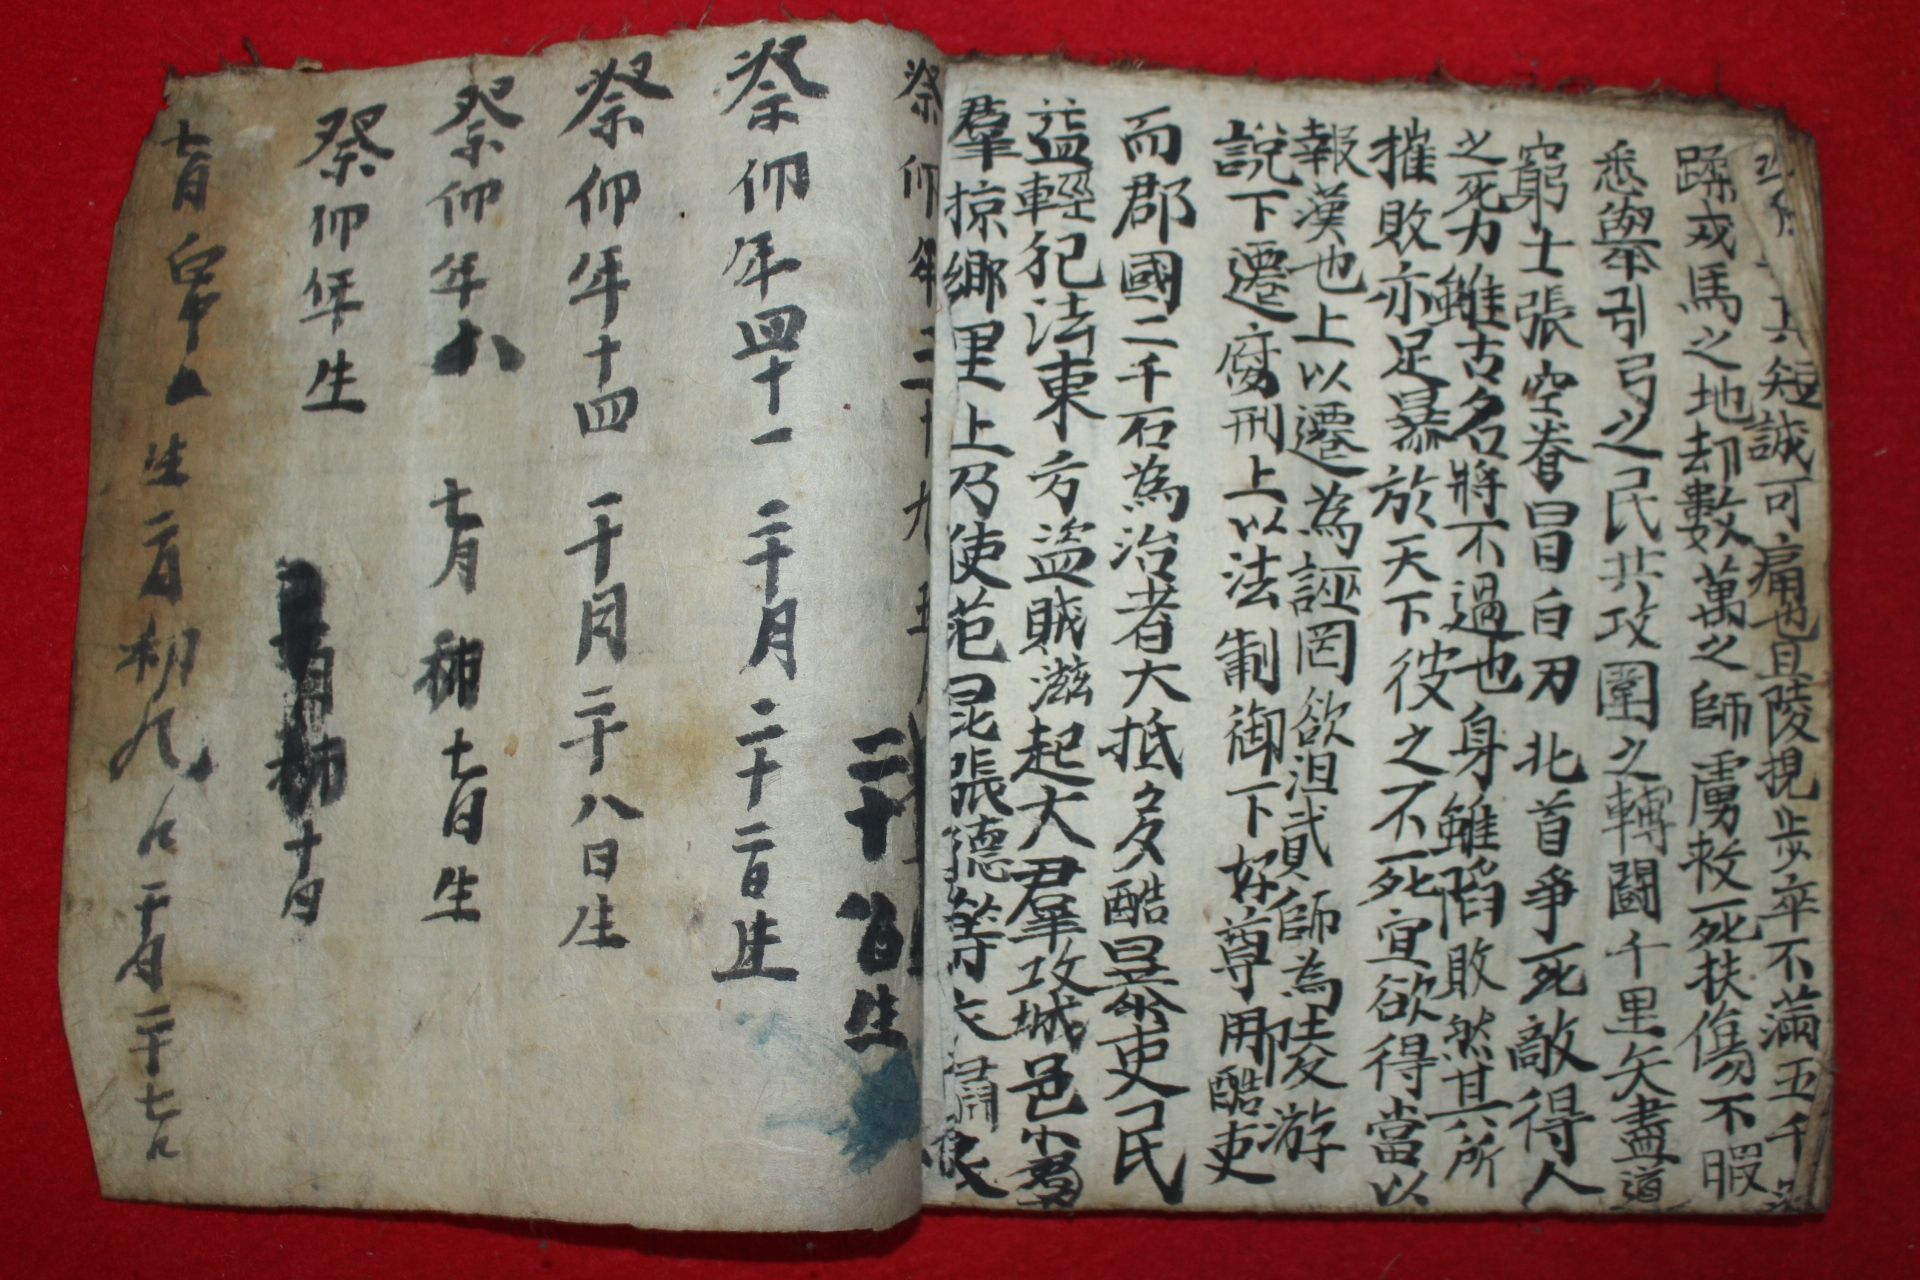 其短誠可痛也且陵提步卒不滿五千深
蹂戎馬之地却數萬之師虜救死扶傷不暇
悉擧引弓之民共攻圍之轉鬪千里矢盡道
窮士張空弮冒白刃北首爭死敵得人
之死力雖古名將不過也身雖陷敗然其所
摧敗亦足暴於天下彼之不死宜欲得當以
報漢也上以遷爲誣罔欲沮貳師爲陵游
說下遷腐刑上以法制御下好尊用酷吏
而郡國二千石為治者大抵多酷暴吏民
益輕犯法東方盜賊滋起大羣攻城邑小羣
羣掠鄕里上乃使范昆張德等衣繡衣
祭仰年三十九五月
二十 百生
祭仰年四十一 二十月二十二日生
祭仰年十四 一十月二十八日生
祭仰年六 七月 初七日生
祭仰年生 十月
七月 生 二月初九 二十七